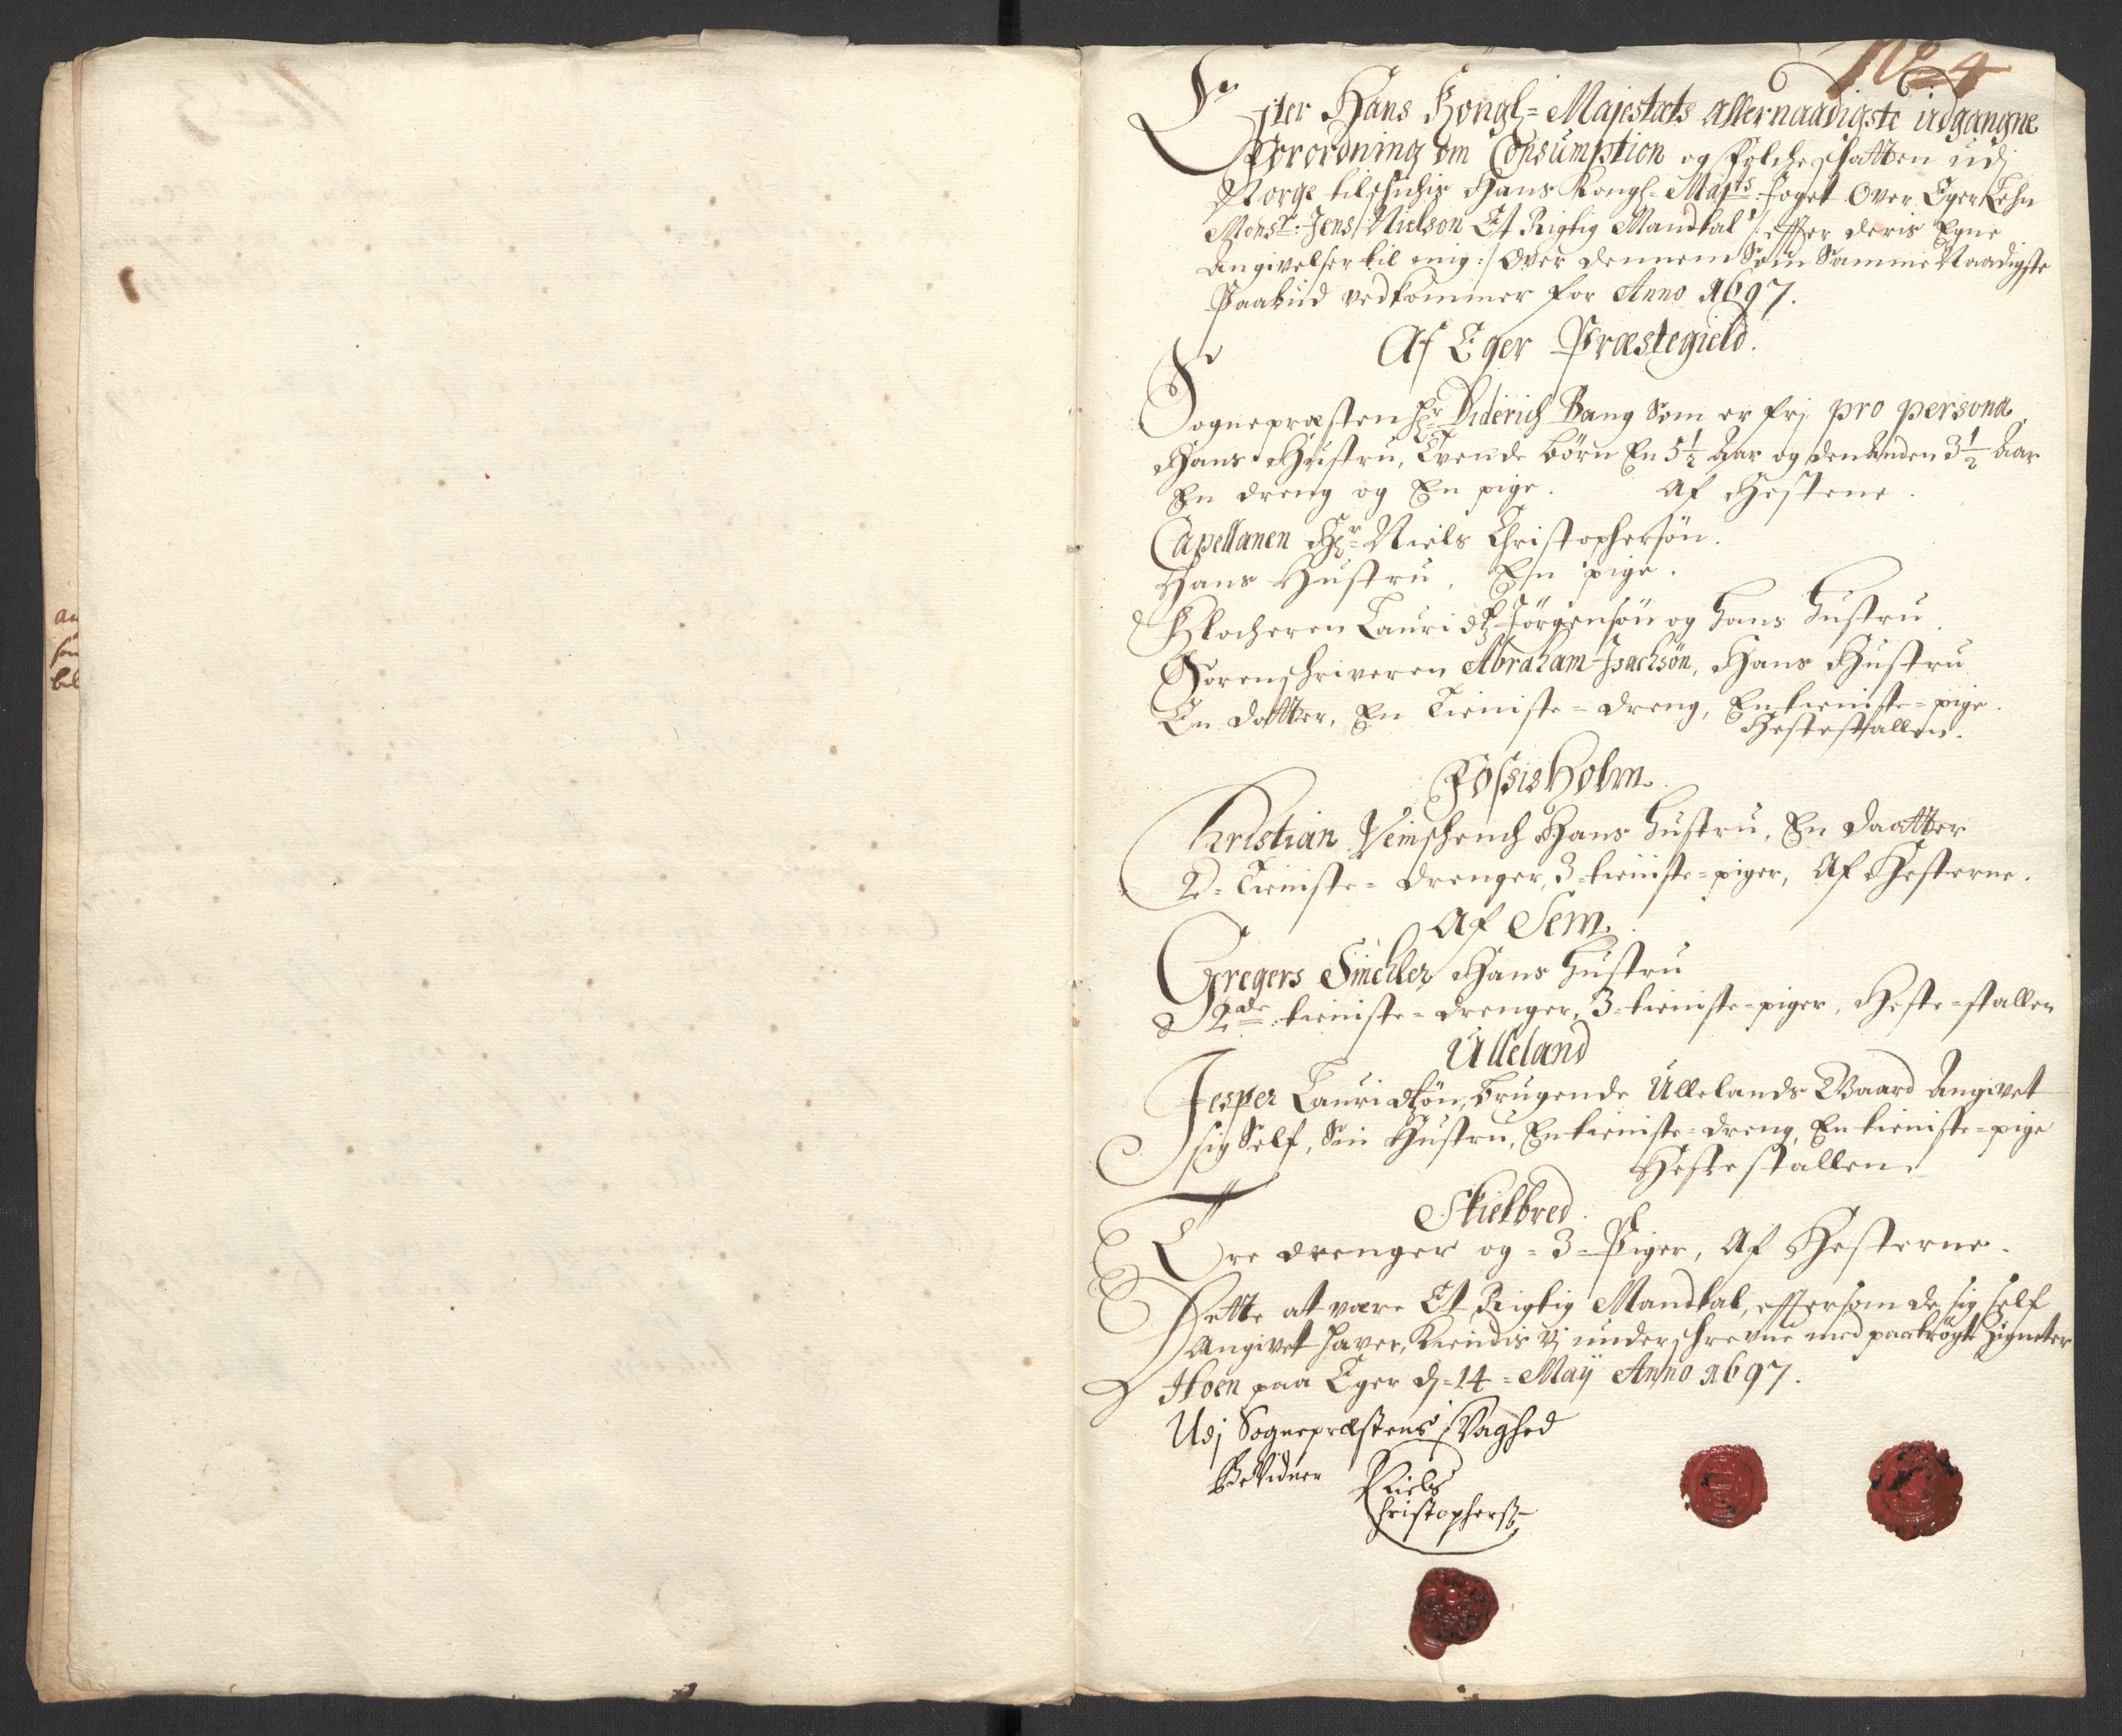 No 4
Efter Hans Kongl= Majestets allernaadigste udgangne
Forordning om Consumption og folcheschatten udj
Norge tilschichis Hans Kongl= Majts foget over Eger Lehn
Monsr. Jens Nielson Et Rigtig Mandtal /: effter deris Egne
angivelser til mig :/ Over dennem Som Samme Naadigste
Paabud vedkommer for Anno 1697.
Af Eger Præstegield.
Sognepræsten Hr Diderich Bang Som er frj pro persona
Hans Hustru, Tvende børn En 5½ Aar og den Anden 3½ Aar
En dreng og En pige. Af Hestene.
Capellanen Hr= Niels Christophersøn.
Hans Hustru, En pige.
Klocheren Lauridtz Jørgensøn og hans hustru.
Sorenschriveren Abraham Isachsøn, Hans Hustru
En datter, En Tieniste=dreng, En tieniste=pige.
Hestestallen.
Fossisholm
Christian Veinschench Hans hustru, En daatter
2= Tieniste= drenger, 3=tieniste=piger, Af Hesterne.
Af Sem.
Gregers Smeller Hans hustru
2de tieniste=drenger, 3=tieniste=piger, Heste=stallen
Ulleland
Jesper Lauridtzøn, brugende Ullelands Gaard Angivet
sig Self, Sin Hustru, En tieniste=dreng, En tieniste=pige
Hestestallen
Skielbred.
Tre drenger og =3= Piger, Af Hesterne.
Dette at være Et Rigtig Mandtal, efftersom de sig self
Angivet haver, Kiendis vj underschrevne med paatrøgte Zigneter
Hoen paa Eger d=14= Maij Anno 1697.
Udj Sognepræstens Svaghed
Bevidner Niels
Christophersøn
an
bl